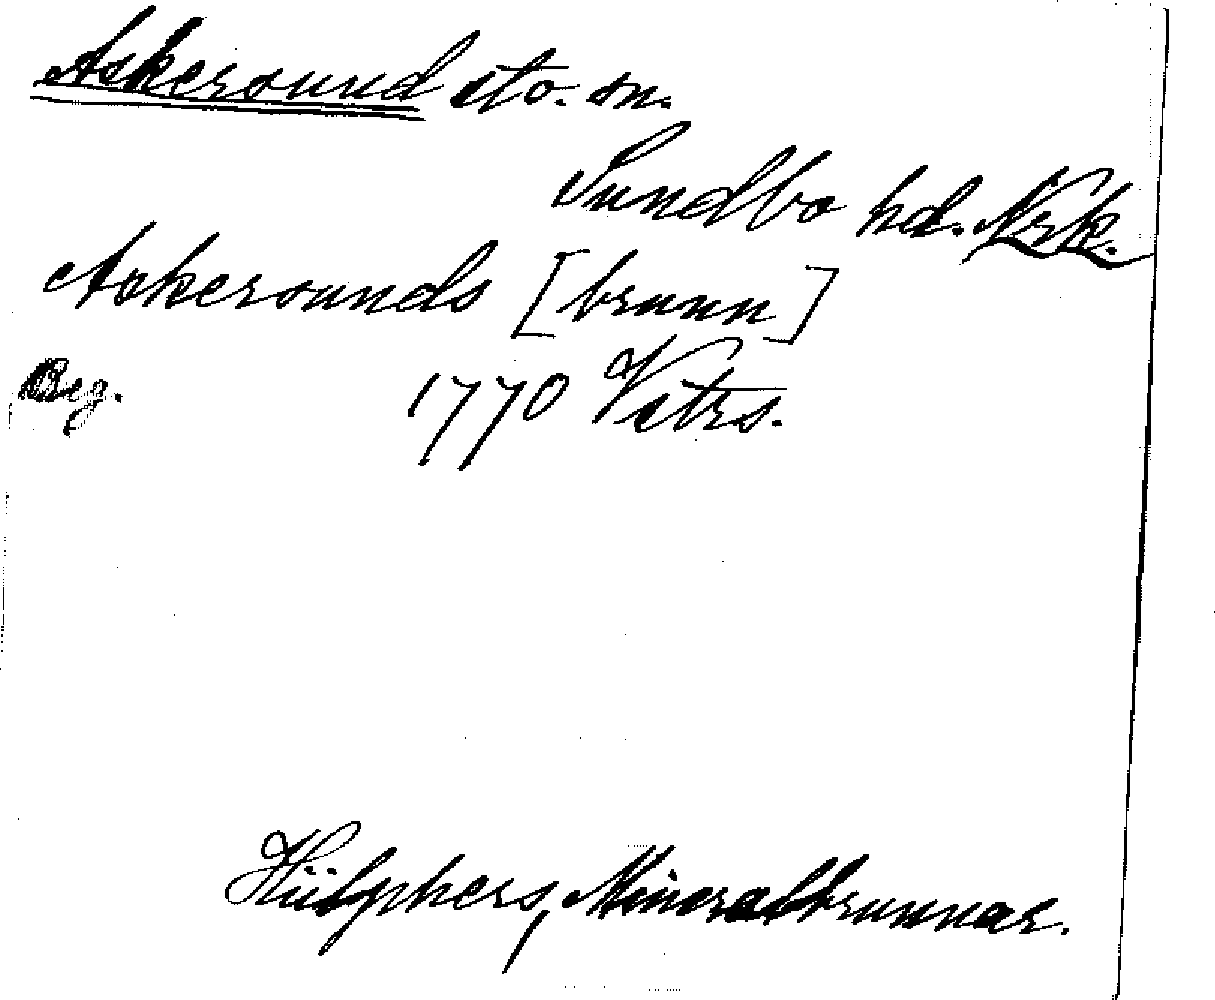 Askersund sto. sn.
Sundbo hd. Nrk.
Askersunds [brunn]
Reg. 1770 Vitrs.
Hülphers, Mineralbrunnar.